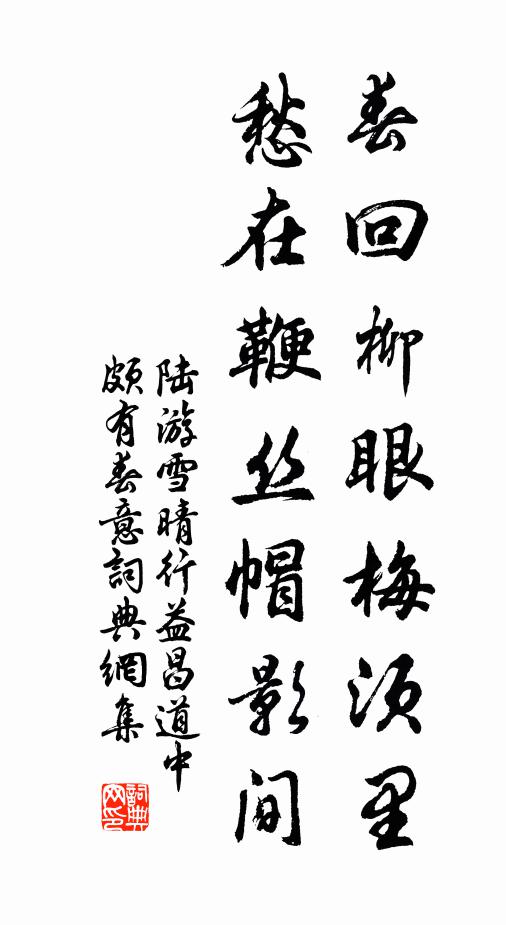 春回柳眼梅须里
愁在鞭丝帽影间
陆游雪晴行益昌道中
颇有春意詞典網集
詞典
网印